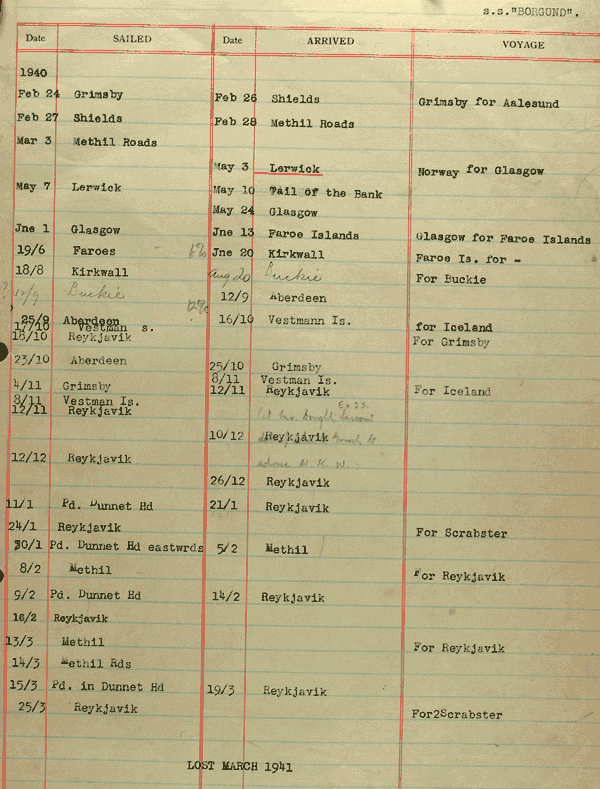 s.s."BORGUND".
Date SAILED Date ARRIVED VOYAGE
1940
Feb 24 Grimsby Feb 26 Shields Grimsby for Aalesund
Feb 27 Shields Feb 28 Methil Roads
Mar 3 Methil Roads
May 3 Lerwick Norway for Glasgow
May 7 Lerwick May 10 Tail of the Bank
May 24 Glasgow
Jne 1 Glasgow Jne 13 Faroe Islands Glasgow for Faroe Islands
19/6 Faroes Jne 20 Kirkwall Faroe Is. for -
18/8 Kirkwall Aug 20 Buckie For Buckie
Buckie 12/9 Aberdeen
25/9 Aberdeen 16/10 Vestmann Is. for Iceland
17/10 Vestman s.
18/10 Reykjavik For Grimsby
23/10 Aberdeen 25/10 Grimsby
8/11 Vestman Is.
4/11 Grimsby 12/11 Reykjavik For Iceland
8/11 Vestman Is.
12/11 Reykjavik
10/12 Reykjavik
12/12 Reykjavik
26/12 Reykjavik
11/1 Pd. Dunnet Hd 21/1 Reykjavik
24/1 Reykjavik For Scrabster
30/1 Pd. Dunnet Hd eastwrds 5/2 Methil
8/2 Methil For Reykjavik
9/2 Pd. Dunnet Hd 14/2 Reykjavik
16/2 Reykjavik
13/3 Methil For Reykjavik
14/3 Methil Rds
15/3 Pd. in Dunnet Hd 19/3 Reykjavik
25/3 Reykjavik For2Scrabster
LOST MARCH 1941